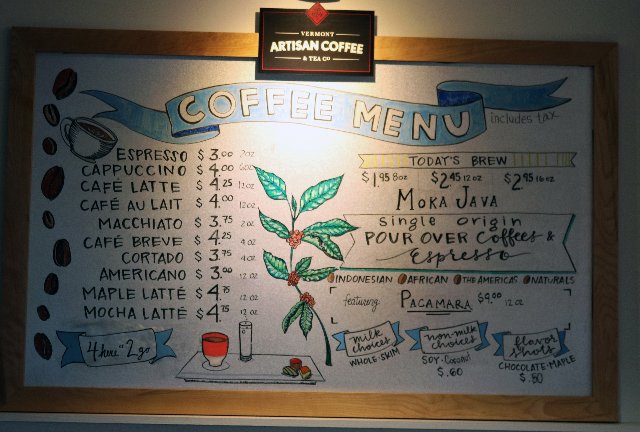 VERMONT
ARTISAN COFFEE
& TEA CO
COFFEE MENU
includes tax
ESPRESSO $3.00 2oz
CAPPUCCINO $4.00 6oz
CAFÉ LATTE $4.25 12oz
CAFÉ AU LAIT $4.00 12oz
MACCHIATO $3.75 2oz
CAFÉ BREVE $4.25 4oz
CORTADO $3.75 4oz
AMERICANO $3.00 12oz
MAPLE LATTÉ $4.75 12oz
MOCHA LATTÉ $4.75 12oz
4 here or 2 go
TODAY'S BREW
$1.95 8oz $2.45 12oz $2.95 16oz
MOKA JAVA
single origin
POUR OVER Coffees &
Espresso
INDONESIAN AFRICAN THE AMERICAS NATURALS
featuring: PACAMARA $9.00 12oz
milk choices
WHOLE·SKIM
non-milk choices
SOY·Coconut
$.60
flavor shots
CHOCOLATE·MAPLE
$.80